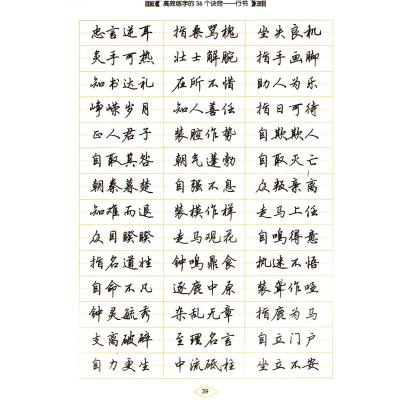 高效练字的36个诀窍——行书
忠言逆耳 指桑骂槐 坐失良机
炙手可热 壮士解腕 指手画脚
知书达礼 在所不惜 助人为乐
峥嵘岁月 知人善任 指日可待
正人君子 装腔作势 自欺欺人
自取其咎 朝气蓬勃 自取灭亡
朝秦暮楚 自强不息 众叛亲离
知难而退 装模作样 走马上任
众目睽睽 走马观花 自鸣得意
指名道姓 钟鸣鼎食 执迷不悟
自命不凡 逐鹿中原 装聋作哑
钟灵毓秀 杂乱无章 指鹿为马
支离破碎 至理名言 自立门户
自力更生 中流砥柱 坐立不安
39